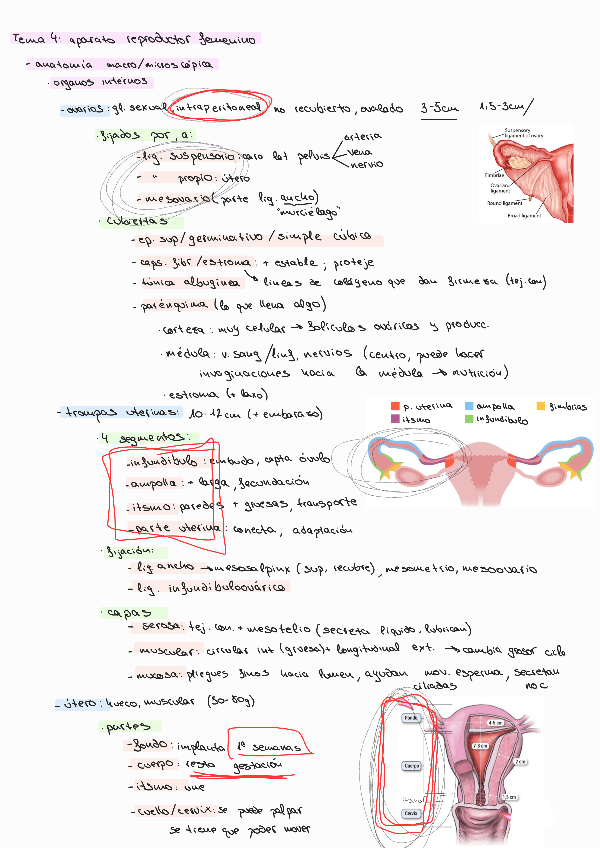 Tema 4: aparato reproductor femenino
- anatomía macro/microscópica
· órganos internos
- ovarios: gl. sexual, intraperitoneal no recubierto, ovalado 3-5cm 1,5-3cm/
· fijados por, a:
- lig. suspensorio: cara lat pelvis
arteria
vena
nervio
- " propio: útero
- mesovario (parte lig. ancho)
"murciélago"
Suspensory
ligament of ovary
Fimbriae
Ovarian
ligament
Round ligament
Broad ligament
· cubiertas
- ep. sup/germinativo/simple cúbico
- caps. fibr/estroma: + estable; proteje
- túnica albugínea → líneas de colágeno que dan firmeza (tej. con)
- parénquima (lo que llena algo)
· corteza: muy celular → folículos ováricos y producc.
· médula: v. sang/linf, nervios (centro, puede hacer
invaginaciones hacia la médula → nutrición)
· estroma (+ laxo)
- trompas uterinas: 10-12cm (+ embarazo)
p. uterina
ampolla
fimbrias
itsmo
infundíbulo
· 4 segmentos:
- infundíbulo: embudo, capta óvulo
- ampolla: + larga, fecundación
- itsmo: paredes + gruesas, transporte
- parte uterina: conecta, adaptación
· fijación:
- lig. ancho → mesosalpinx (sup, recubre), mesometrio, mesoovario
- lig. infundibuloovárico
· capas
- serosa: tej. con. + mesotelio (secreta líquido, lubrican)
- muscular: circular int (gruesa) + longitudinal ext. → cambia grosor ciclo
- mucosa: pliegues finos hacia lumen, ayudan mov. esperma, secretan
ciliadas no c
- útero: hueco, muscular (50-80g)
· partes
- fondo: implanta 1ª semanas
- cuerpo: resto gestación
- itsmo: une
- cuello/cervix: se puede palpar
se tiene que poder mover
Fondo
Cuerpo
itsmo
Cérvix
4-6 cm
7-8 cm
2 cm